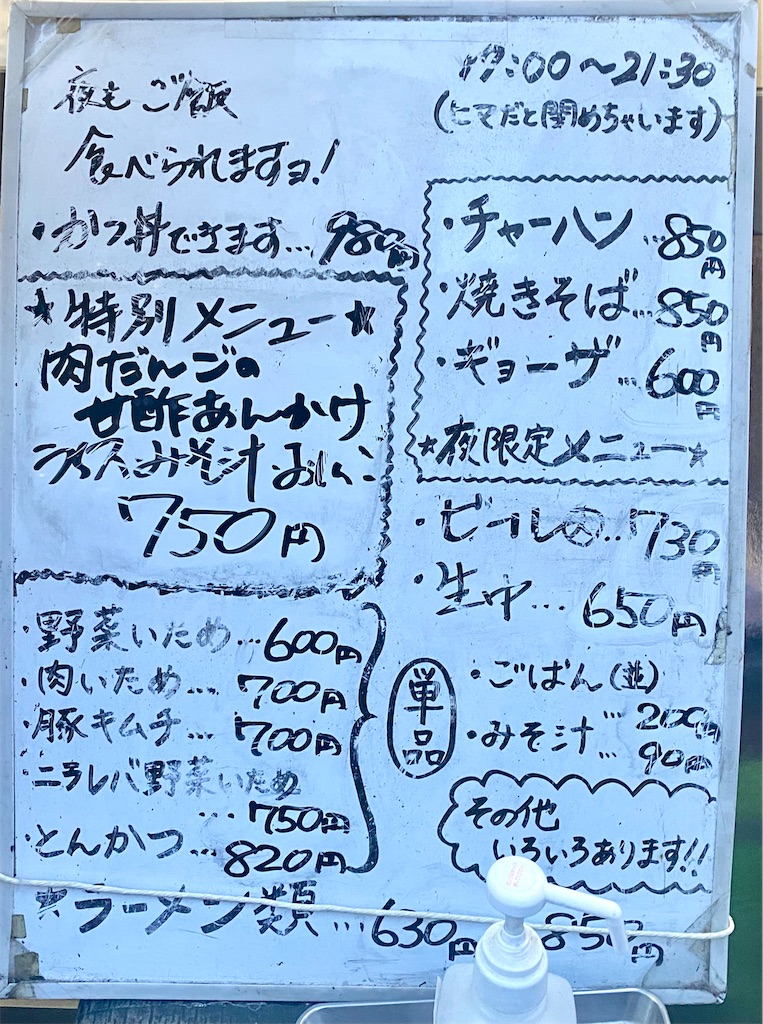 夜もご飯
食べられますョ!
・かつ丼できます…980円
17:00～21:30
(ヒマだと閉めちゃいます)
・チャーハン…850円
・焼きそば…850円
・ギョーザ…600円
★夜限定メニュー★
★特別メニュー★
肉だんごの
甘酢あんかけ
ライス みそ汁 おしんこ
750円
・ビール㊥…730円
・生中…650円
・野菜いため…600円
・肉いため…700円
・豚キムチ…700円
・ニラレバ野菜いため
…750円
・とんかつ…820円
単品
・ごはん(並)
…200円
・みそ汁…90円
その他
いろいろあります!!
★ラーメン類…630円
850円